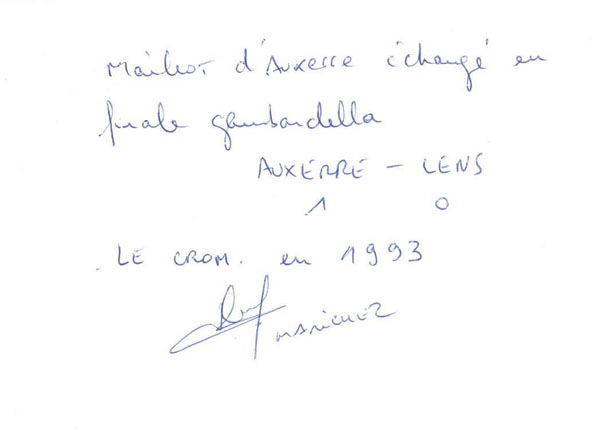 Maillot d'Auxerre échangé en
finale gambardella
AUXERRE - LENS
1 0
LE CROM. en 1993
MARICHEZ